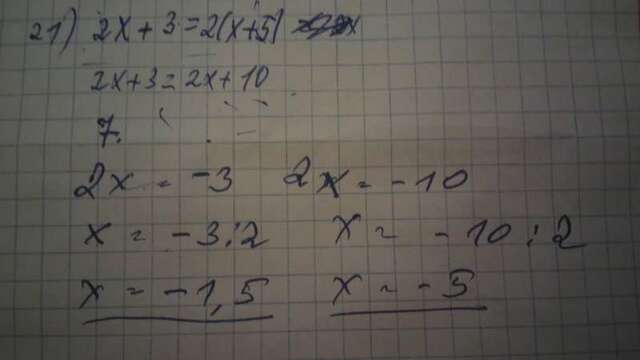 21) 2x + 3 = 2(x+5)
2x+3 = 2x + 10
7.
2x = -3 2x = -10
x = -3:2 x = -10:2
x = -1,5 x = -5